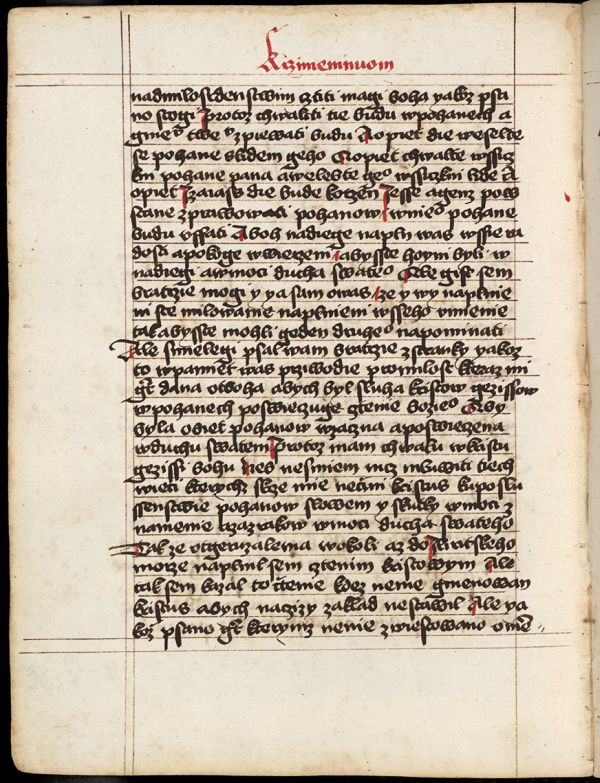 K rzimeninuom
nadmilosrdenstwim cztiti magi boha yakoz psa
no stogi Protoz chwaliti tie budu w pohanech a
gmeno twe zpiewati budu A opiet die weselte
se pohane s lidem geho A opiet chwalte wssicz
kni pohane pana a welebte geho wssiczkni lide A
opiet Izaiass die bude korzen Jesse a genz pow
stane zprawowati pohanow w nieho pohane
budu uffati A boh nadiege napln was wssie ra
dosti a pokoge w wierzeni abysste hoyni byli w
nadiegi a w moci ducha swateho A we gist sem
bratrzie mogi y ya sam o was ze y wy naplnie
ni ste milowanie naplnieni wsseho umienie
tak abysste mohli geden druheho napominati
Ale smielegi psal wam bratrzie z stranky yakoz
to w pamiet was prziwodie pro milost kteraz mi
gest dana ot boha abych byl sluha kristow gezissow
w pohanech poswieczuge cztenie bozieho Aby
byla obiet pohanow wzaczna a poswieczena
w duchu swatem Protoz mam chwalu w kristu
gezissi k bohu Nebo nesmiem nicz mluwiti tiech
wieci kterychz skrze mie neczini kristus ku poslu
ssenstwie pohanow slowem y skutky w moci z
namenie a zazrakow w moci ducha swateho
Tak ze ot geruzalema w okoli az do Iliritskeho
morze naplnil sem cztenim kristowym Ale
tak sem kazal to cztenie kdez nenie gmenowan
kristus abych na czizy zaklad nestawil Ale ya
koz psano gest kterymz nenie zwiestowano o nem